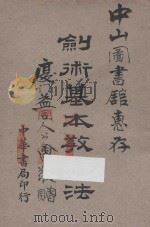 中山圖書館惠存
劍術基本教法
中華書局印行